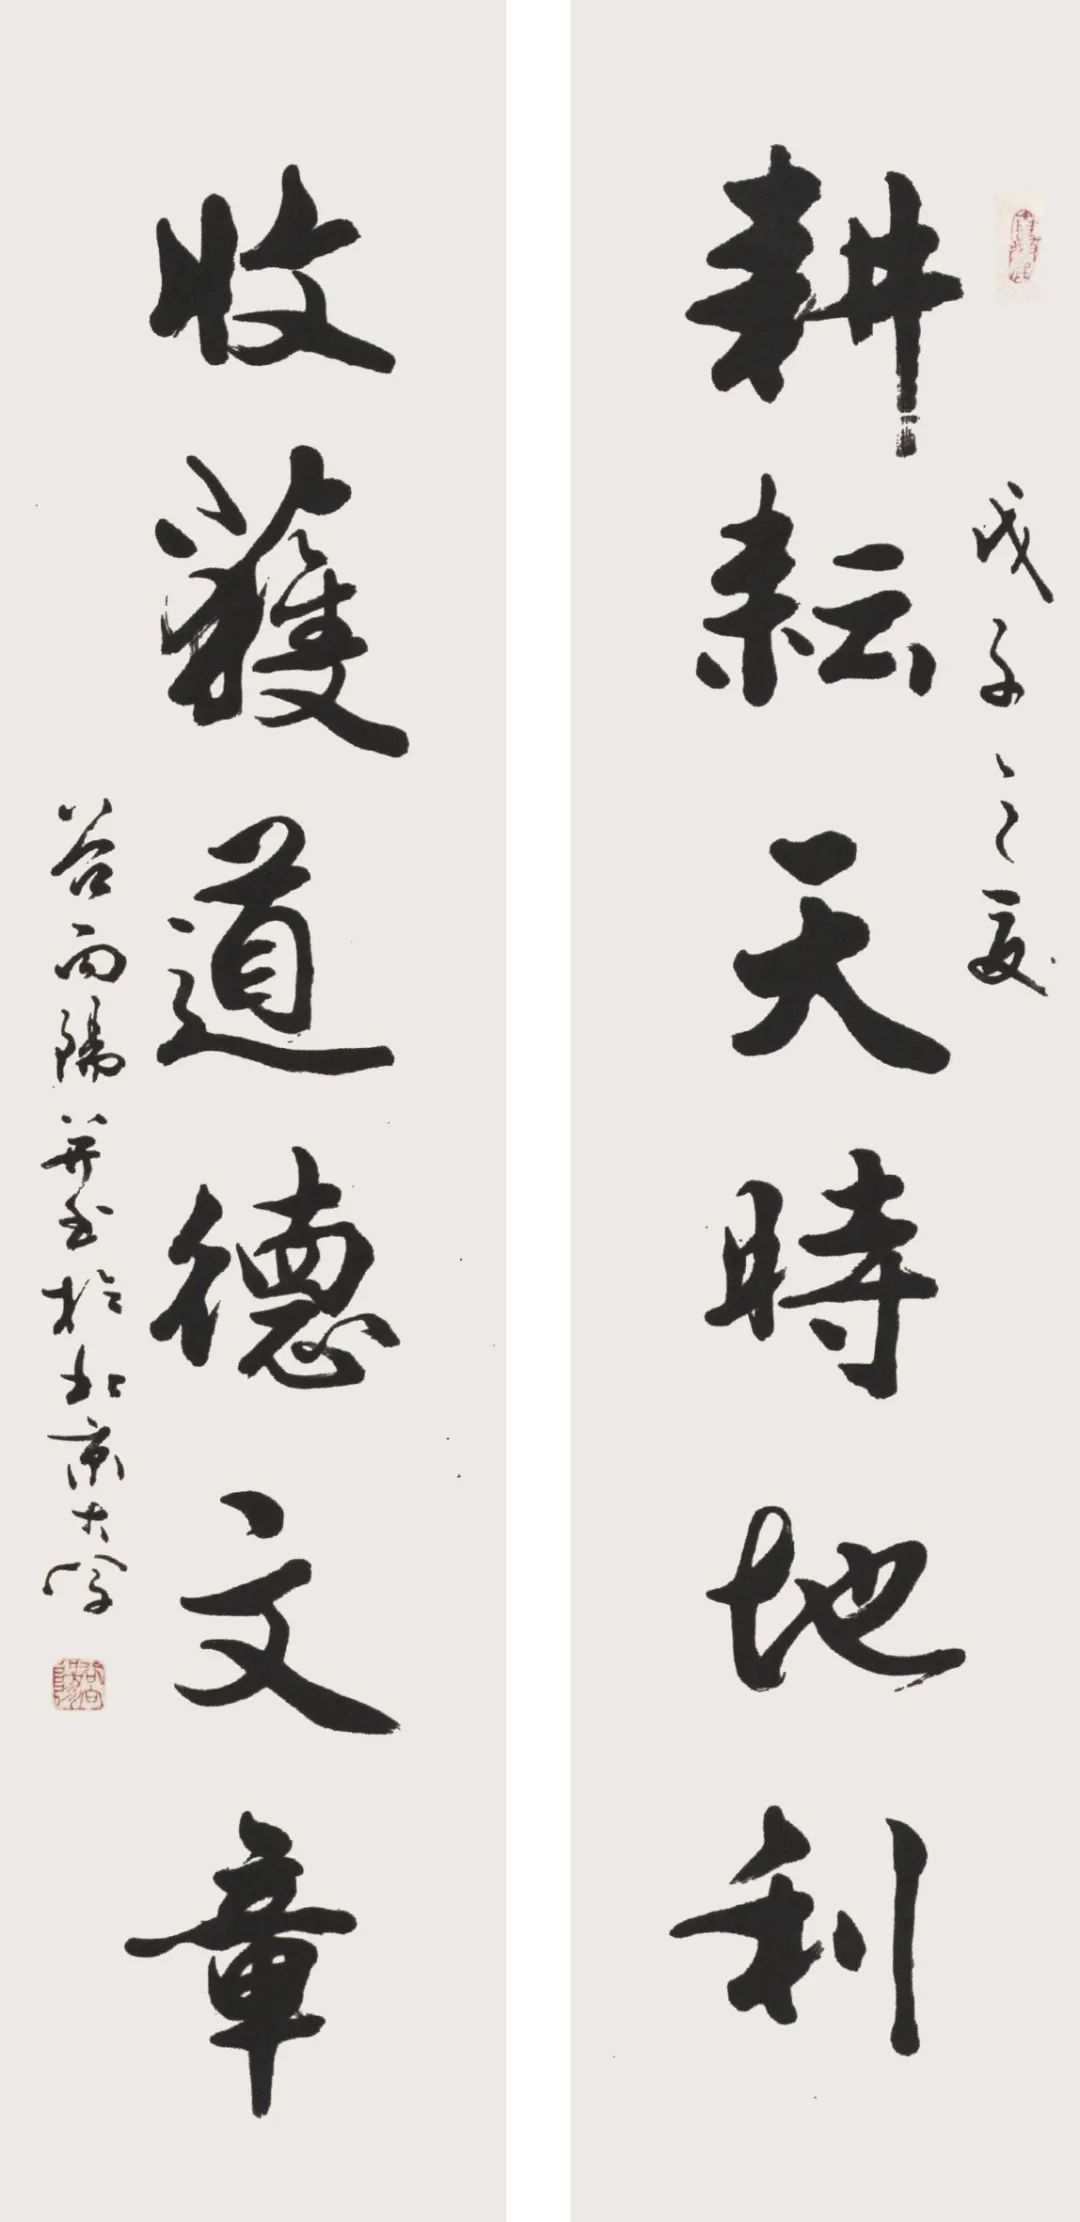 戊子之夏
耕耘天時地利
收獲道德文章
谷向陽并書於北京大學